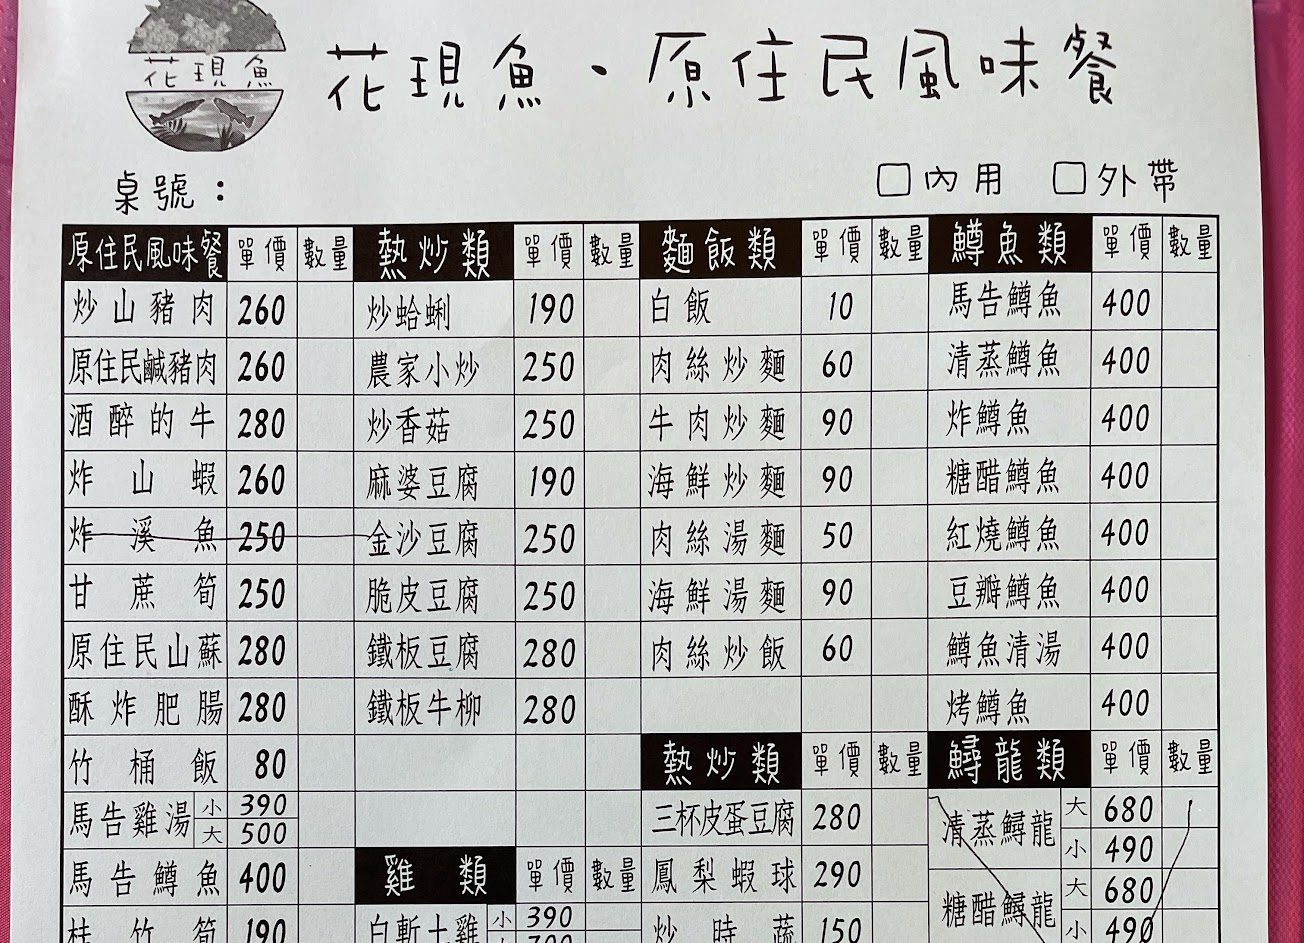 花現魚
花現魚・原住民風味餐
桌號：
□內用 □外帶
原住民風味餐 單價 數量 熱炒類 單價 數量 麵飯類 單價 數量 鱒魚類 單價 數量
炒山豬肉 260 炒蛤蜊 190 白飯 10 馬告鱒魚 400
原住民鹹豬肉 260 農家小炒 250 肉絲炒麵 60 清蒸鱒魚 400
酒醉的牛 280 炒香菇 250 牛肉炒麵 90 炸鱒魚 400
炸山蝦 260 麻婆豆腐 190 海鮮炒麵 90 糖醋鱒魚 400
炸溪魚 250 金沙豆腐 250 肉絲湯麵 50 紅燒鱒魚 400
甘蔗筍 250 脆皮豆腐 250 海鮮湯麵 90 豆瓣鱒魚 400
原住民山蘇 280 鐵板豆腐 280 肉絲炒飯 60 鱒魚清湯 400
酥炸肥腸 280 鐵板牛柳 280 烤鱒魚 400
竹桶飯 80 熱炒類 單價 數量 鱘龍類 單價 數量
馬告雞湯 小 390 大 500 三杯皮蛋豆腐 280 清蒸鱘龍 大 680 小 490
馬告鱒魚 400 雞類 單價 數量 鳳梨蝦球 290 糖醋鱘龍 大 680 小 490
桂竹筍 190 白斬土雞 小 390 炒時蔬 150